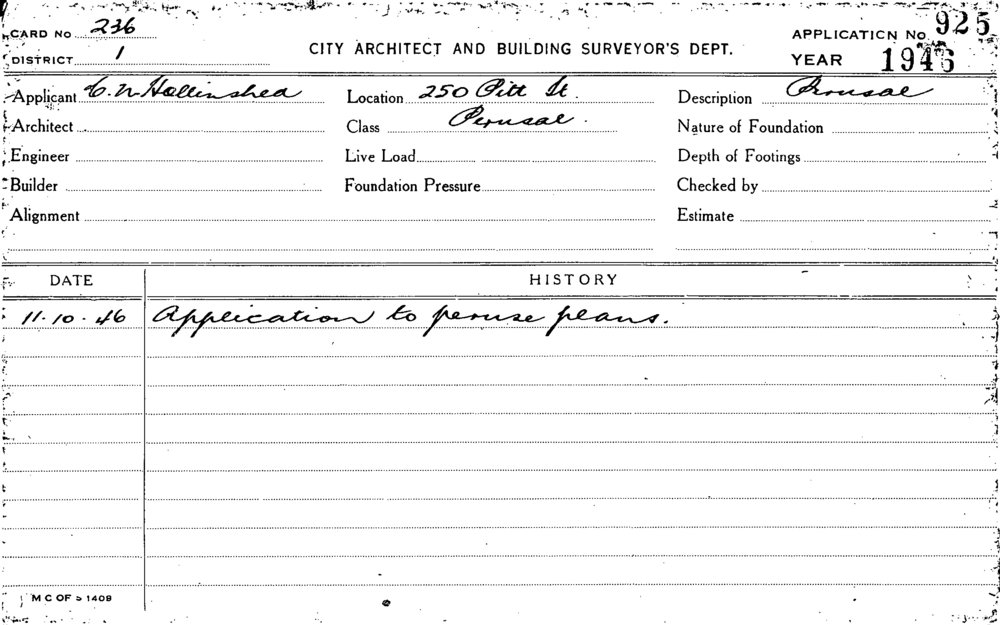 CARD No 236
APPLICATION No. 925
DISTRICT 1
CITY ARCHITECT AND BUILDING SURVEYOR'S DEPT.
YEAR 1946
Applicant C. N. Hollinshed
Location 250 Pitt St.
Description Perusal
Architect
Class Perusal.
Nature of Foundation
Engineer
Live Load
Depth of Footings
Builder
Foundation Pressure
Checked by
Alignment
Estimate
DATE
HISTORY
11.10.46 Application to peruse plans.
M C OF S 1409